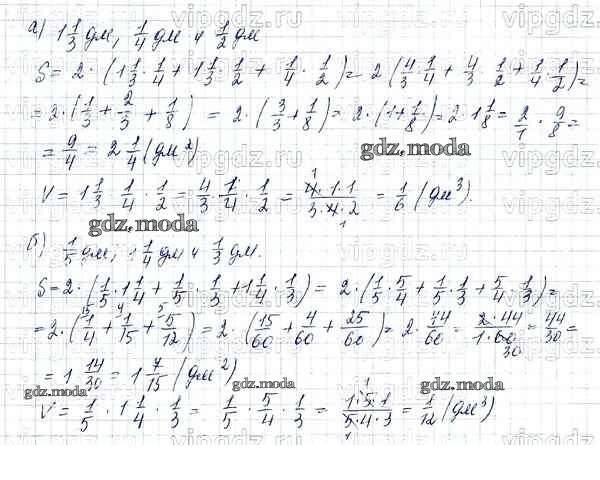 а) 1 1/3 дм, 1/4 дм и 1/2 дм
S = 2 · (1 1/3 · 1/4 + 1 1/3 · 1/2 + 1/4 · 1/2) = 2 (4/3 · 1/4 + 4/3 · 1/2 + 1/4 · 1/2) =
= 2 · (1/3 + 2/3 + 1/8) = 2 · (3/3 + 1/8) = 2 · (1 + 1/8) = 2 · 1 1/8 = 2/1 · 9/8 =
= 9/4 = 2 1/4 (дм²)
gdz.moda
V = 1 1/3 · 1/4 · 1/2 = 4/3 · 1/4 · 1/2 = 4·1·1/3·4·2 = 1/6 (дм³).
gdz.moda
б) 1/5 дм, 1 1/4 дм и 1/3 дм.
S = 2 · (1/5 · 1 1/4 + 1/5 · 1/3 + 1 1/4 · 1/3) = 2 · (1/5 · 5/4 + 1/5 · 1/3 + 5/4 · 1/3) =
= 2 · (1/4 + 1/15 + 5/12) = 2 · (15/60 + 4/60 + 25/60) = 2 · 44/60 = 2·44/1·60 = 44/30 =
= 1 14/30 = 1 7/15 (дм²)
gdz.moda gdz.moda gdz.moda
V = 1/5 · 1 1/4 · 1/3 = 1/5 · 5/4 · 1/3 = 1·5·1/5·4·3 = 1/12 (дм³)
vipgdz.ru